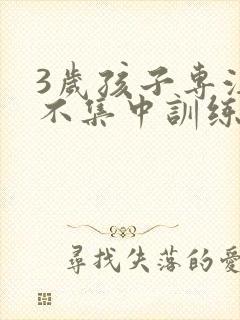 3歲孩子專注
不集中訓練
尋找失落的愛